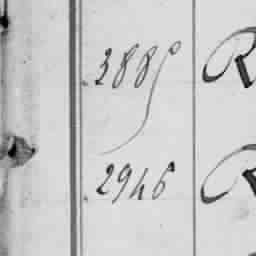 3885 R
2946 R